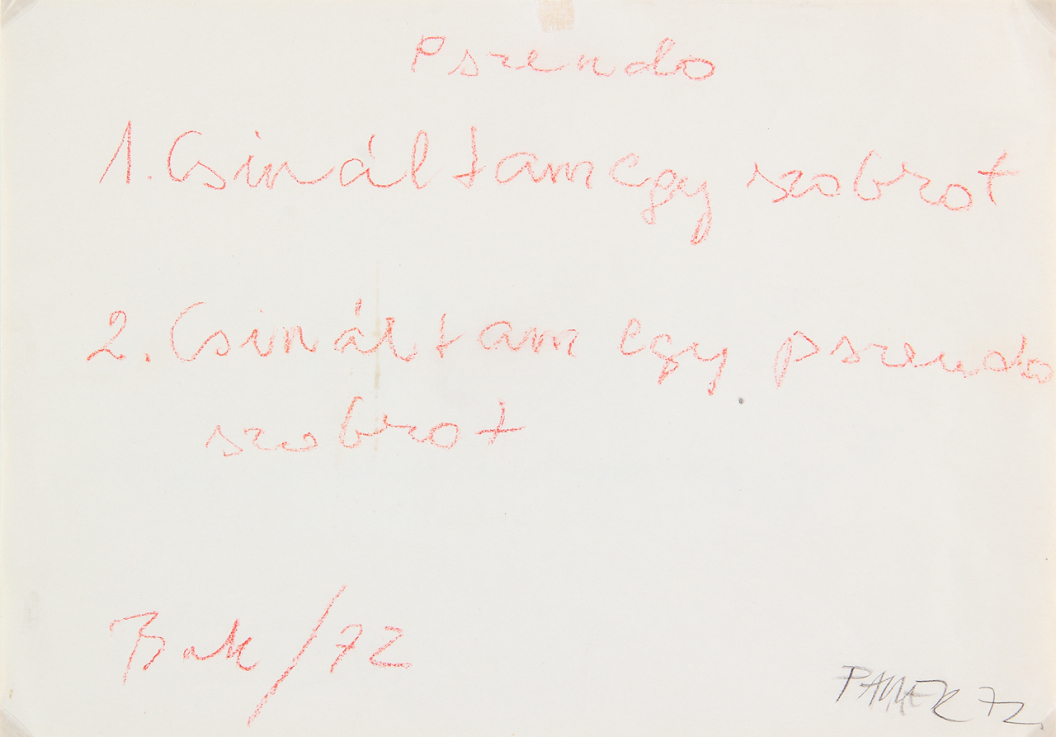 Pszeudo
1. Csináltam egy szobrot
2. Csináltam egy pszeudo
szobrot
Bak /72
PAUER 72